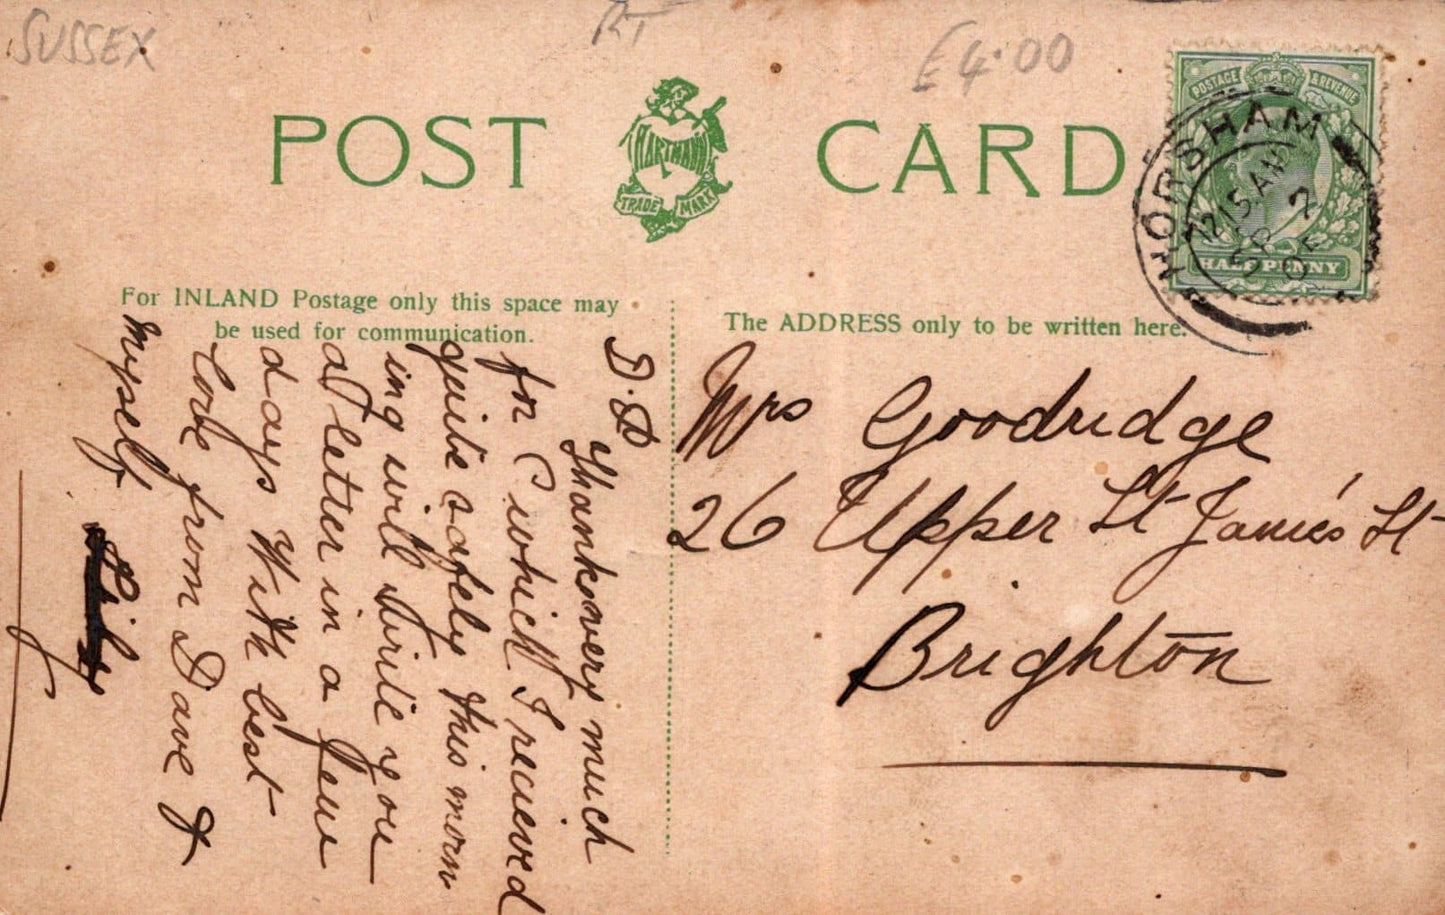 SUSSEX
RT
£4.00
POST CARD
HARTMANN
TRADE MARK
POSTAGE & REVENUE
HALF PENNY
HORSHAM
1215 AM
DE 2
For INLAND Postage only this space may
be used for communication.
The ADDRESS only to be written here.
D.P
Thanks very much
for C which I recieved
quite safely this morn
ing will write you
a letter in a few
days With best
love from Dave &
myself
Lily
Mrs Goodridge
26 Upper St James's St
Brighton